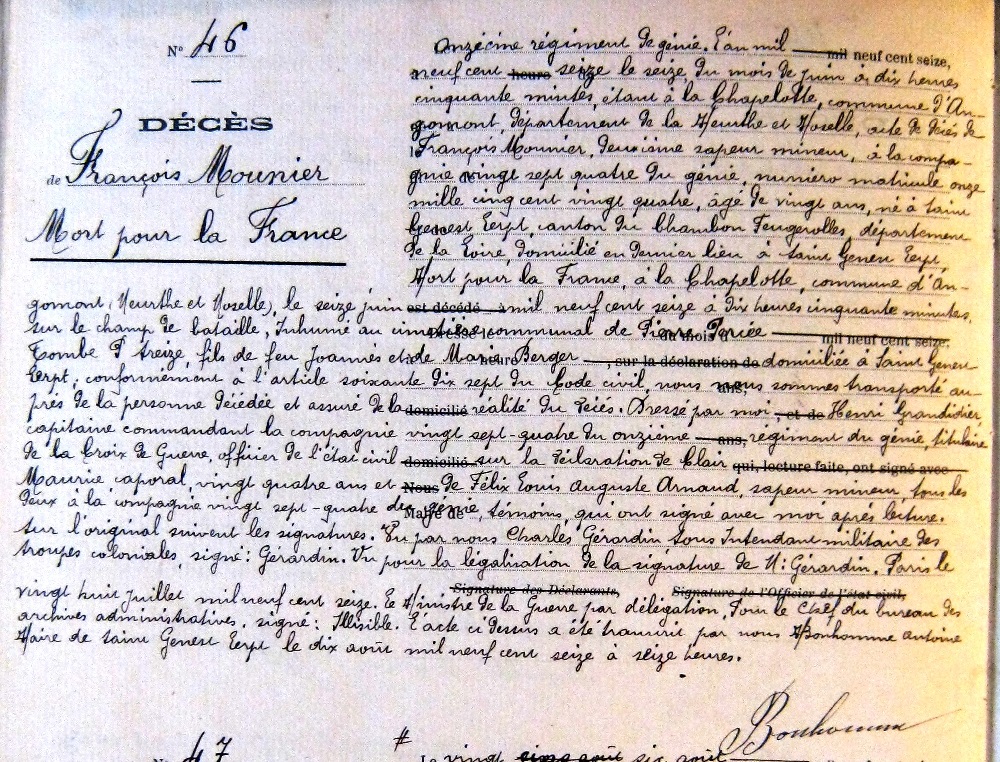 N° 46
DÉCÈS
de François Mounier
Mort pour la France
Onzécine régiment de génie. L'an mil mil neuf cent seize,
neuf cent heure seize le seize du mois de juin à dix heures
cinquante mintes, étant à la Chapelotte, commune d'An-
gomont, département de la Meurthe et Moselle, acte de décés de
François Mounier, deuxième sapeur mineur, à la compa-
gnie vingt sept quatre du génie, numéro matricule onze
mille cinq cent vingt quatre, âgé de vingt ans, né à Saint
Genest Lerpt, canton du Chambon Feugerolles, département
de la Loire, domicilié en dernier lieu à Saint Genest Lerpt,
Mort pour la France, à la Chapelotte, commune d'An-
gomont, (Meurthe et Moselle), le seize juin est décédé à mil neuf cent seize à dix heures cinquante minutes,
sur le champ de bataille, Inhumé au cimetière communal de Pierre Percée mil neuf cent seize,
Tombe P treize, fils de feu Joannès et de Marie Berger heure , sur la déclaration de domiciliée à Saint Genest
Lerpt, conformément à l'article soixante dix sept du Code civil, nous ans, nous sommes transporté au-
près de la personne décédée et assuré de la domicilié réalité du décés. Dressé par moi , et de Henri Grandidier
capitaine commandant la compagnie vingt sept-quatre du onzième ans, régiment du génie, titulaire
de la Croix de Guerre, officier de l'état civil domicilié sur la déclaration de Clair qui, lecture faite, ont signé avec
Maurice caporal, vingt quatre ans et Nous de Félix Louis Auguste Arnaud, sapeur mineur, tous les
deux à la compagnie vingt sept-quatre du génie Maire de , témoins, qui ont signé avec moi après lecture.
Sur l'original suivent les signatures. Vu par nous Charles Gérardin Sous Intendant militaire des
troupes coloniales, signé: Gérardin. Vu pour la légalisation de la signature de M: Gérardin. Paris le
Signature des Déclarants, Signature de l'Officier de l'état civil,
vingt huit juillet mil neuf cent seize. Le Ministre de la Guerre par délégation, Pour le Chef du bureau des
archives administratives, signé: Illisible. L'acte ci dessus a été transcrit par nous Bonhomme Antoine
Maire de Saint Genest Lerpt le dix août mil neuf cent seize à seize heures.
Bonhomme
N° 47
# Le vingt cinq août six août